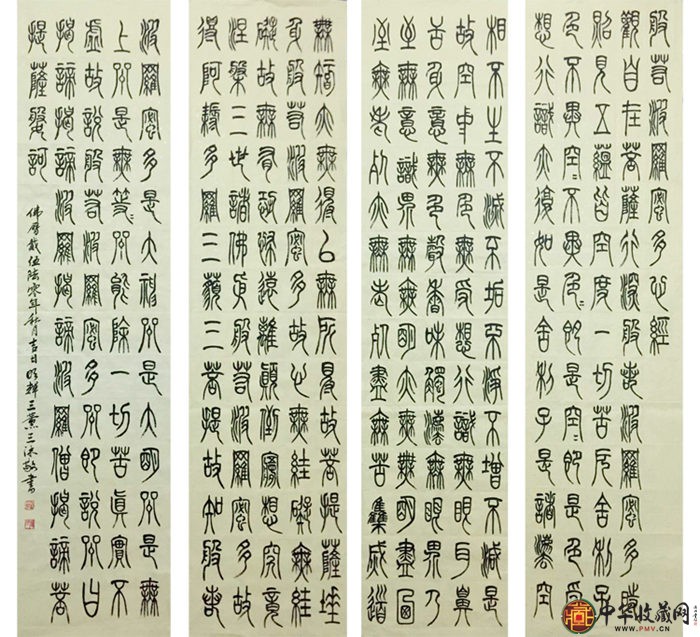 般若波羅蜜多心經
觀自在菩薩行深般若波羅蜜多時
照見五蘊皆空度一切苦厄舍利子
色不異空空不異色色即是空空即是色受
想行識亦復如是舍利子是諸法空
相不生不滅不垢不淨不增不減是
故空中無色無受想行識無眼耳鼻
舌身意無色聲香味觸法無眼界乃
至無意識界無無明亦無無明盡廼
至無老死亦無老死盡無苦集滅道
無智亦無得以無所得故菩提薩埵
依般若波羅蜜多故心無罣礙無罣
礙故無有恐怖遠離顛倒夢想究竟
涅槃三世諸佛依般若波羅蜜多故
得阿耨多羅三藐三菩提故知般若
波羅蜜多是大神咒是大明咒是無
上咒是無等等咒能除一切苦真實不
虛故說般若波羅蜜多咒即說咒曰
揭諦揭諦波羅揭諦波羅僧揭諦菩
提薩婆訶
佛曆貳伍陸零年秋月吉日明輝三薰三沐敬書
中华收藏网
WWW.PMV.CN